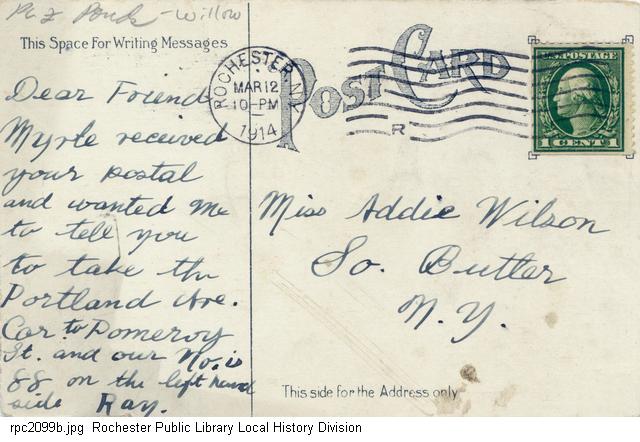 Pk & Ponds - Willow
This Space For Writing Messages
POST CARD
ROCHESTER N.Y.
MAR 12
10-PM
1914
R
U.S. POSTAGE
1 CENT 1
Dear Friend
Myrle received
your postal
and wanted me
to tell you
to take the
Portland Ave.
Car to Pomeroy
St. and our No. is
88 on the left hand
side Ray.
Miss Addie Wilson
So. Butler
N.Y.
This side for the Address only
rpc2099b.jpg Rochester Public Library Local History Division